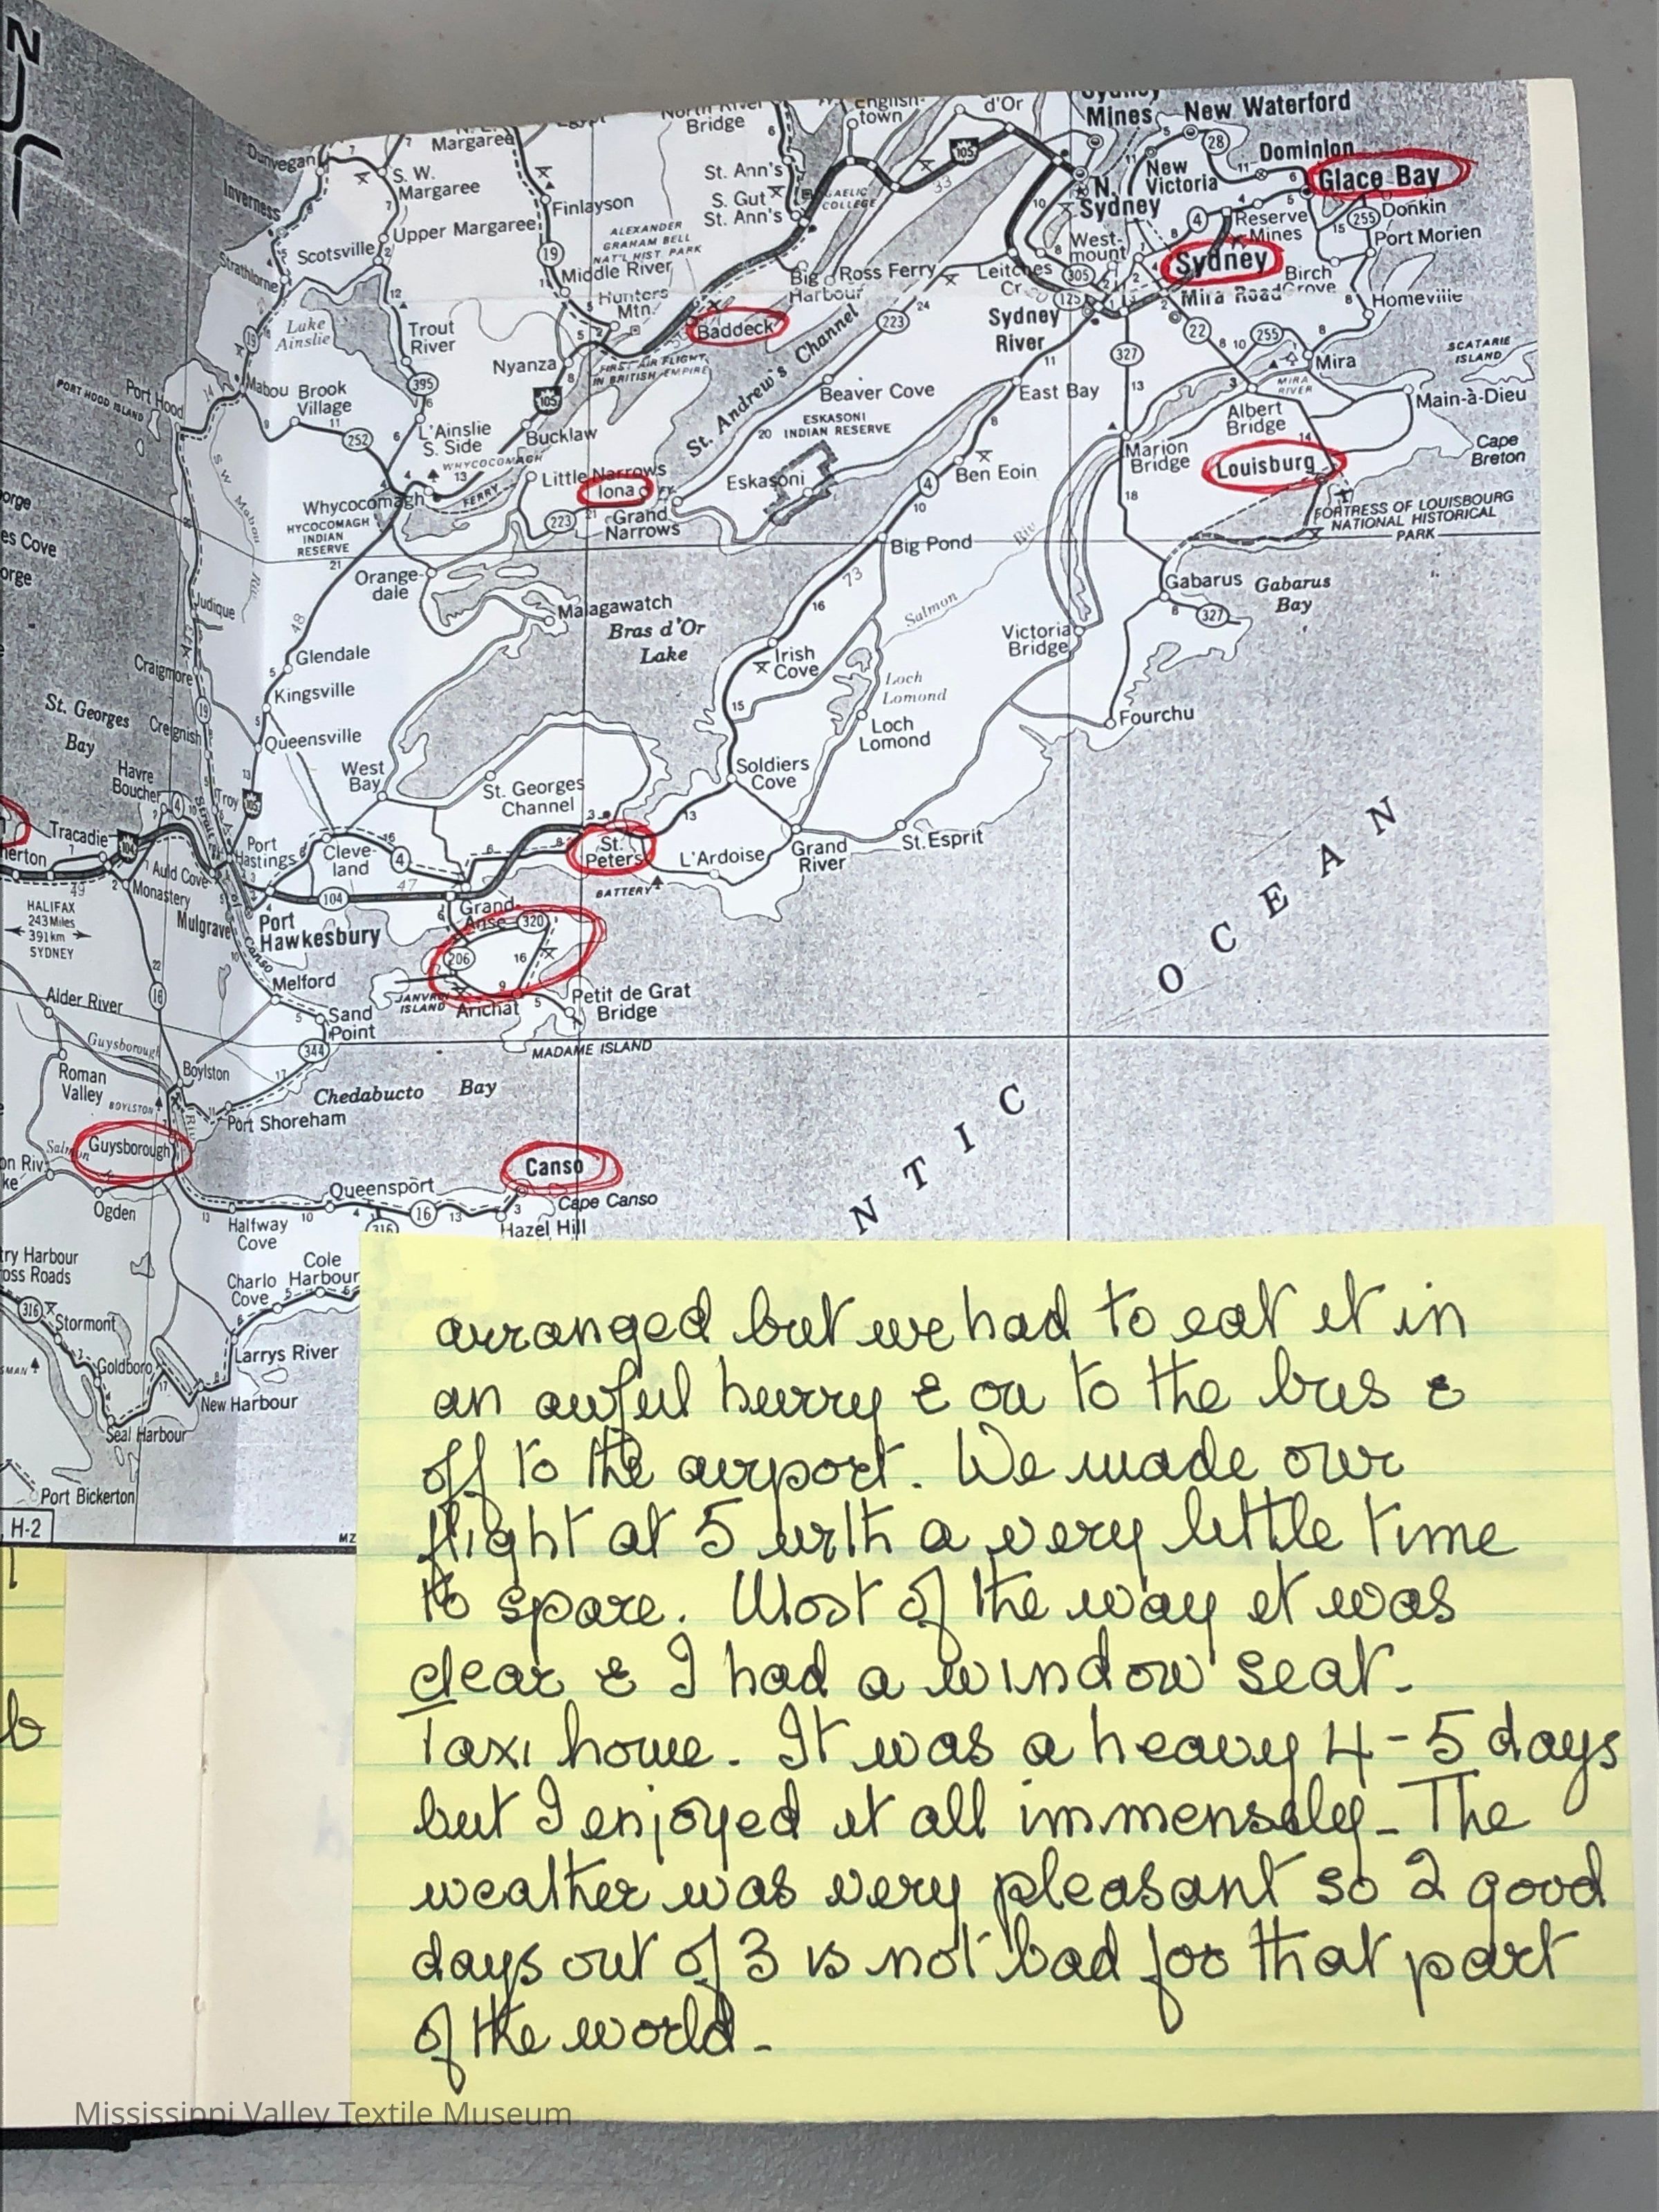 N
Dunvegan
Margaree
North River
Bridge
English-
town
d'Or
Sydney
Mines
New Waterford
28
Dominion
Glace Bay
S. W.
Margaree
Inverness
Finlayson
St. Ann's
S. Gut
St. Ann's
GAELIC
COLLEGE
105
33
N.
Sydney
New
Victoria
Reserve
Mines
255
Donkin
Port Morien
Scotsville
Upper Margaree
ALEXANDER
GRAHAM BELL
NAT'L HIST. PARK
19
Middle River
Strathlorne
Hunters
Mtn.
Big
Harbour
Ross Ferry
Leitches
Cr.
West-
mount
305
125
4
Sydney
Birch
Grove
Mira Road
Homeville
Lake
Ainslie
Trout
River
Nyanza
Baddeck
FIRST AIR FLIGHT
IN BRITISH EMPIRE
St. Andrew's Channel
223
24
Sydney
River
22
255
327
Mira
MIRA
RIVER
SCATARIE
ISLAND
PORT HOOD ISLAND
Port Hood
Mabou
Brook
Village
395
105
252
L'Ainslie
S. Side
Bucklaw
Beaver Cove
ESKASONI
INDIAN RESERVE
East Bay
Albert
Bridge
Main-à-Dieu
Cape
Breton
WHYCOCOMAGH
Whycocomagh
HYCOCOMAGH
INDIAN
RESERVE
FERRY
Little Narrows
Iona
223
Grand
Narrows
Eskasoni
4
Ben Eoin
Marion
Bridge
Louisburg
FORTRESS OF LOUISBOURG
NATIONAL HISTORICAL
PARK
S. W. Mabou Riv
orge
es Cove
orge
Orange-
dale
Big Pond
Gabarus
Gabarus
Bay
327
Judique
Malagawatch
Bras d'Or
Lake
73
Salmon Riv
Victoria
Bridge
48
Glendale
Irish
Cove
Craigmore
Kingsville
Loch
Lomond
Loch
Lomond
Fourchu
St. Georges
Bay
Creignish
19
Queensville
West
Bay
St. Georges
Channel
Soldiers
Cove
Havre
Boucher
4
Troy
105
Tracadie
104
herton
49
Auld Cove
Monastery
Port
Hastings
Cleve-
land
4
47
St.
Peters
BATTERY
L'Ardoise
Grand
River
St. Esprit
HALIFAX
243 Miles
391 km
SYDNEY
Mulgrave
Strait of Canso
Port
Hawkesbury
104
Grand
Anse
320
206
16
JANVRIN
ISLAND
Arichat
Petit de Grat
Bridge
MADAME ISLAND
Melford
Sand
Point
344
Alder River
16
Guysborough
Roman
Valley
Boylston
BOYLSTON
Port Shoreham
Chedabucto Bay
Salmon
Guysborough
Canso
Cape Canso
Hazel Hill
on Riv
ke
Ogden
Queensport
16
316
Halfway
Cove
NTIC
OCEAN
try Harbour
oss Roads
316
Stormont
Cole
Harbour
Charlo
Cove
Larrys River
Goldboro
New Harbour
Seal Harbour
Port Bickerton
H-2
MZ
arranged but we had to eat it in
an awful hurry & on to the bus &
off to the airport. We made our
flight at 5 with a very little time
to spare. Most of the way it was
clear & I had a window seat.
Taxi home. It was a heavy 4-5 days
but I enjoyed it all immensely - The
weather was very pleasant so 2 good
days out of 3 is not bad for that part
of the world -
Mississippi Valley Textile Museum